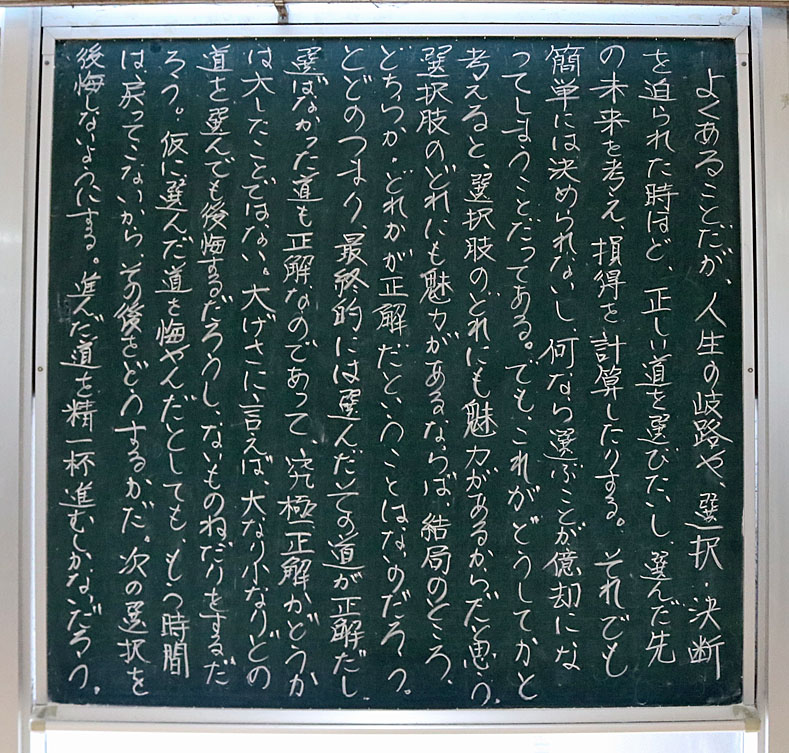 よくあることだが、人生の岐路や、選択・決断
を迫られた時ほど、正しい道を選びたいし、選んだ先
の未来を考え、損得を計算したりする。それでも
簡単には決められないし、何なら選ぶことが億却にな
ってしまうことだってある。でも、これがどうしてかと
考えると、選択肢のどれにも魅力があるからだと思う。
選択肢のどれにも魅力があるならば、結局のところ、
どちらか・どれかが正解だということはないのだろう。
とどのつまり、最終的には選んだ全ての道が正解だし、
選ばなかった道も正解なのであって、究極、正解かどうか
は大したことではない。大げさに言えば、大なり小なりどの
道を選んでも後悔するだろうし、ないものねだりをするだ
ろう。仮に選んだ道を悔やんだとしても、もう時間
は戻ってこないから、その後をどうするかだ。次の選択を
後悔しないようにする。進んだ道を精一杯進むしかないだろう。